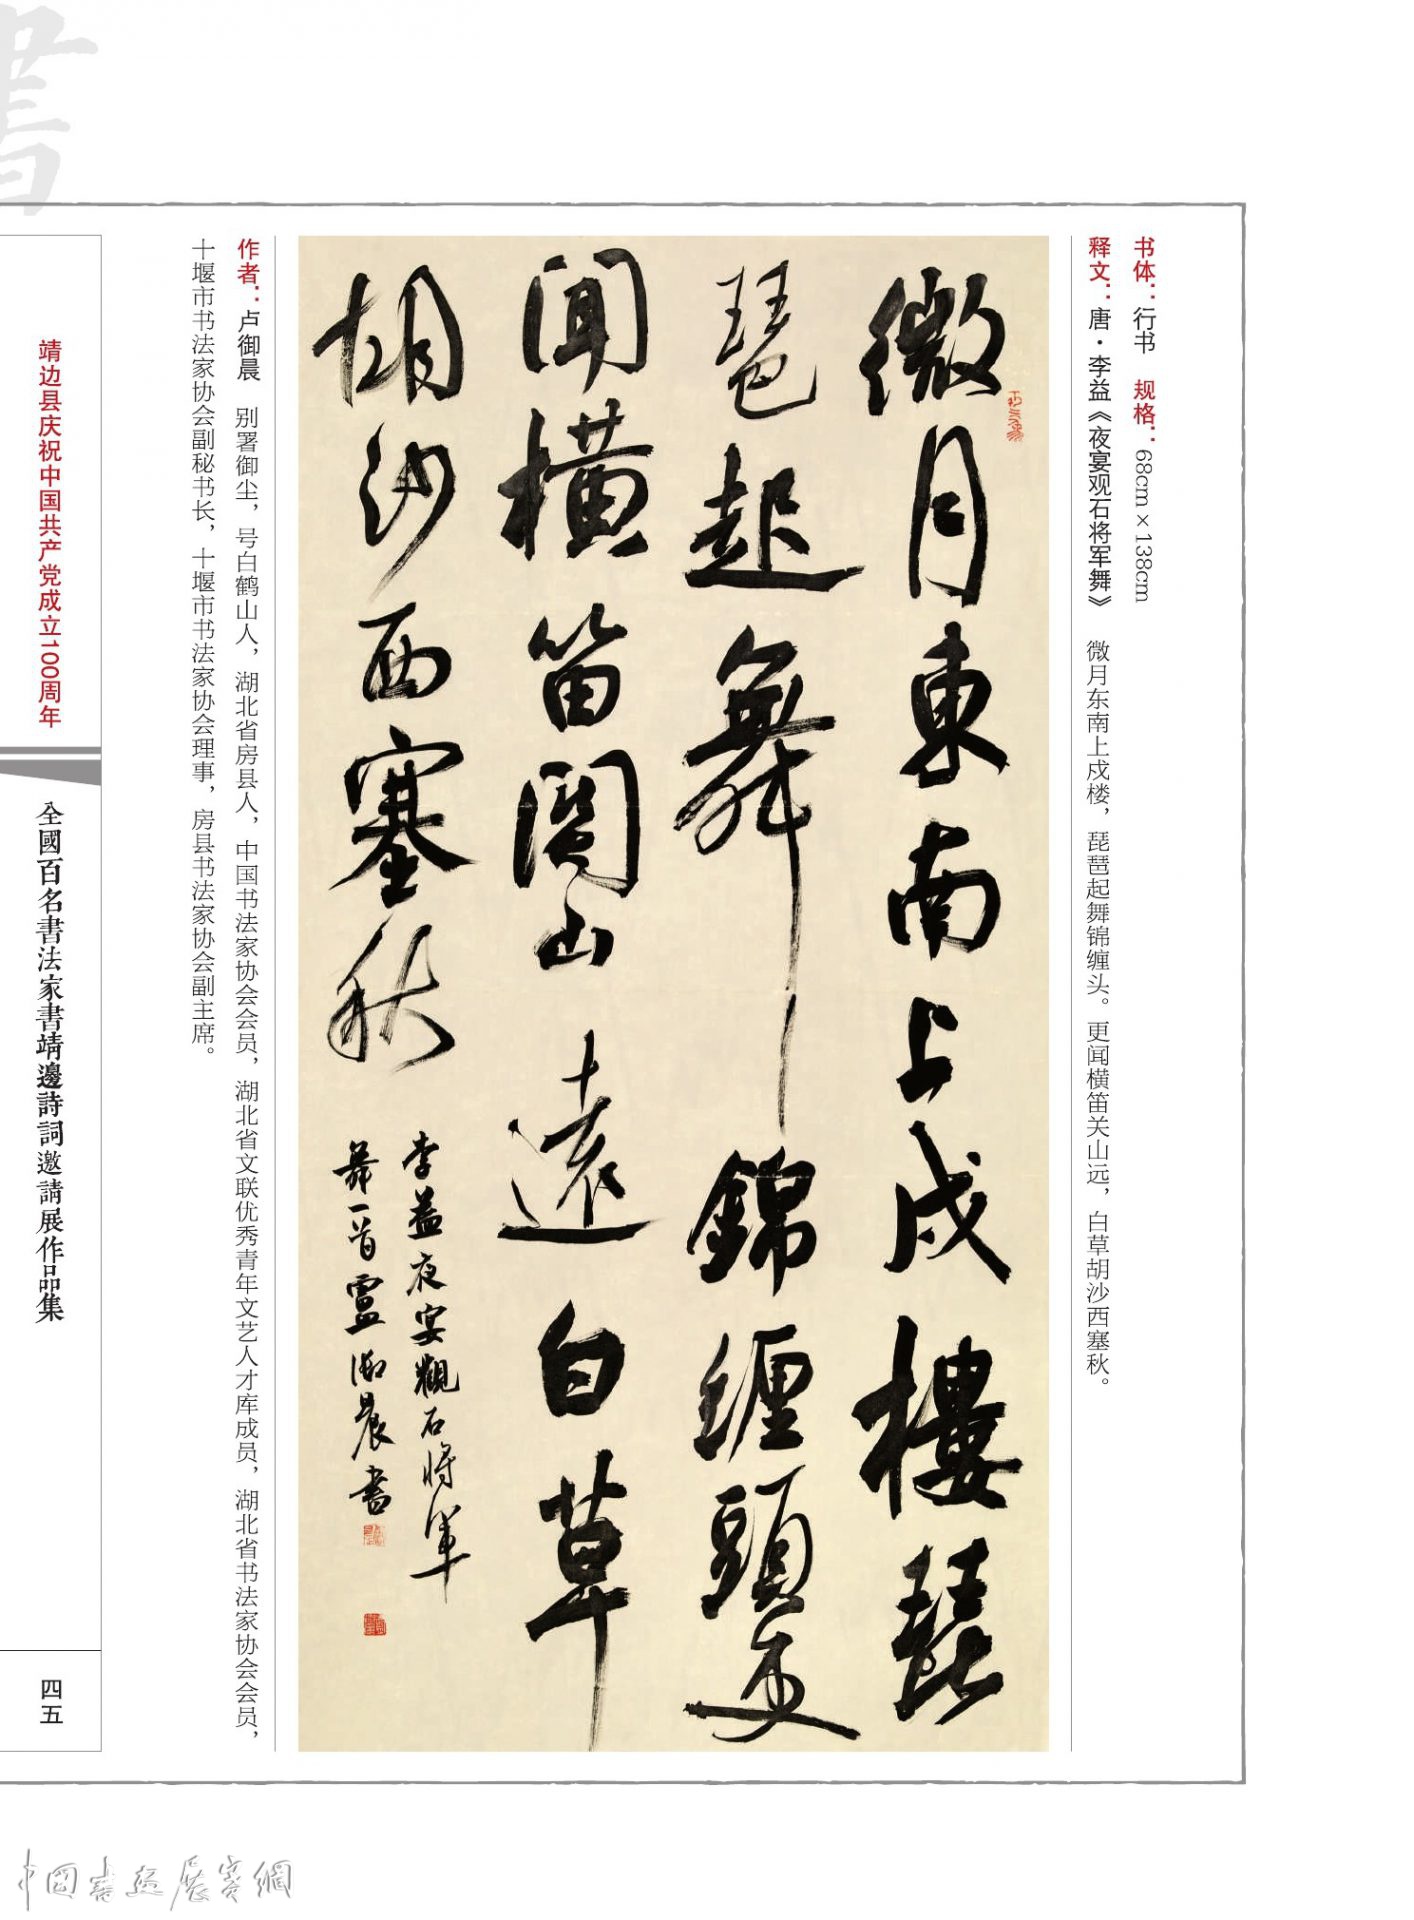 書
书体：行书　规格：68cm×138cm
释文：唐·李益《夜宴观石将军舞》　微月东南上戍楼，琵琶起舞锦缠头。更闻横笛关山远，白草胡沙西塞秋。
微月東南上戍樓琵
琶起舞錦缠頭更
聞橫笛関山遠白草
胡沙西塞秋
李益夜宴觀石将軍
舞一首盧御晨書
作者：卢御晨　别署御尘，号白鹤山人，湖北省房县人，中国书法家协会会员，湖北省文联优秀青年文艺人才库成员，湖北省书法家协会会员，
十堰市书法家协会副秘书长，十堰市书法家协会理事，房县书法家协会副主席。
靖边县庆祝中国共产党成立100周年
全國百名書法家書靖邊詩詞邀請展作品集
四五
中國書畫展賽網